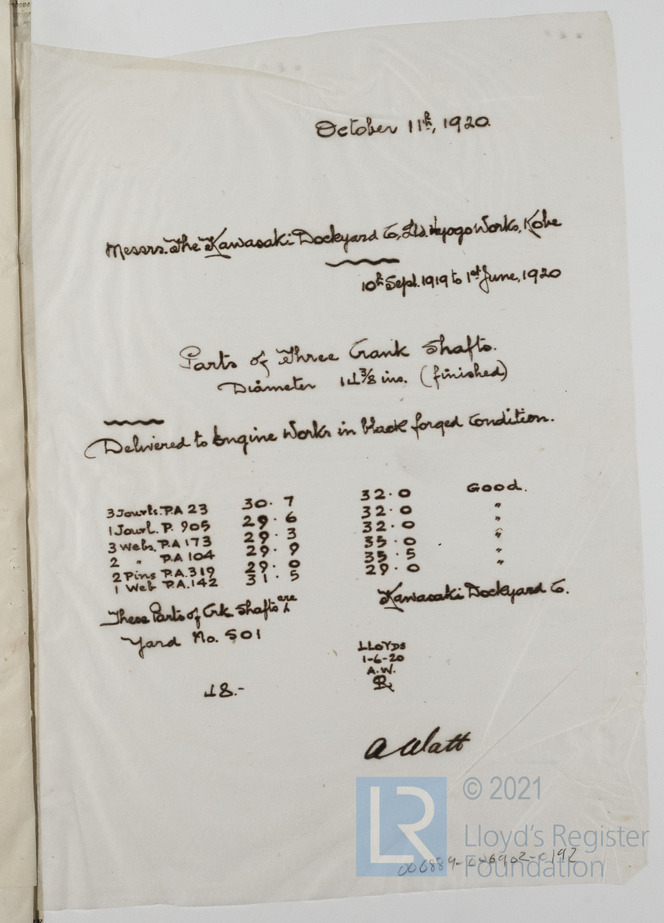 October 11th, 1920.
Messrs. The Kawasaki Dockyard Co, Ltd. Hyogo Works, Kobe
10th Sept. 1919 to 1st June, 1920
Parts of Three Crank Shafts.
Diameter 14 3/8 ins. (finished)
Delivered to Engine Works in black forged condition.
3 Jourls. P.A 23 30.7 32.0 Good.
1 Jourl. P. 905 29.6 32.0 "
3 Webs P.A 173 29.3 32.0 "
2 " P.A 104 29.9 35.0 "
2 Pins P.A. 319 29.0 35.5 "
1 Web P.A. 142 31.5 29.0
These Parts of Crk Shafts are Kawasaki Dockyard Co.
Yard No. 501
LLOYDS
1-6-20
A.W.
LR
£8.-
A Watt
© 2021
LR
Lloyd's Register
Foundation